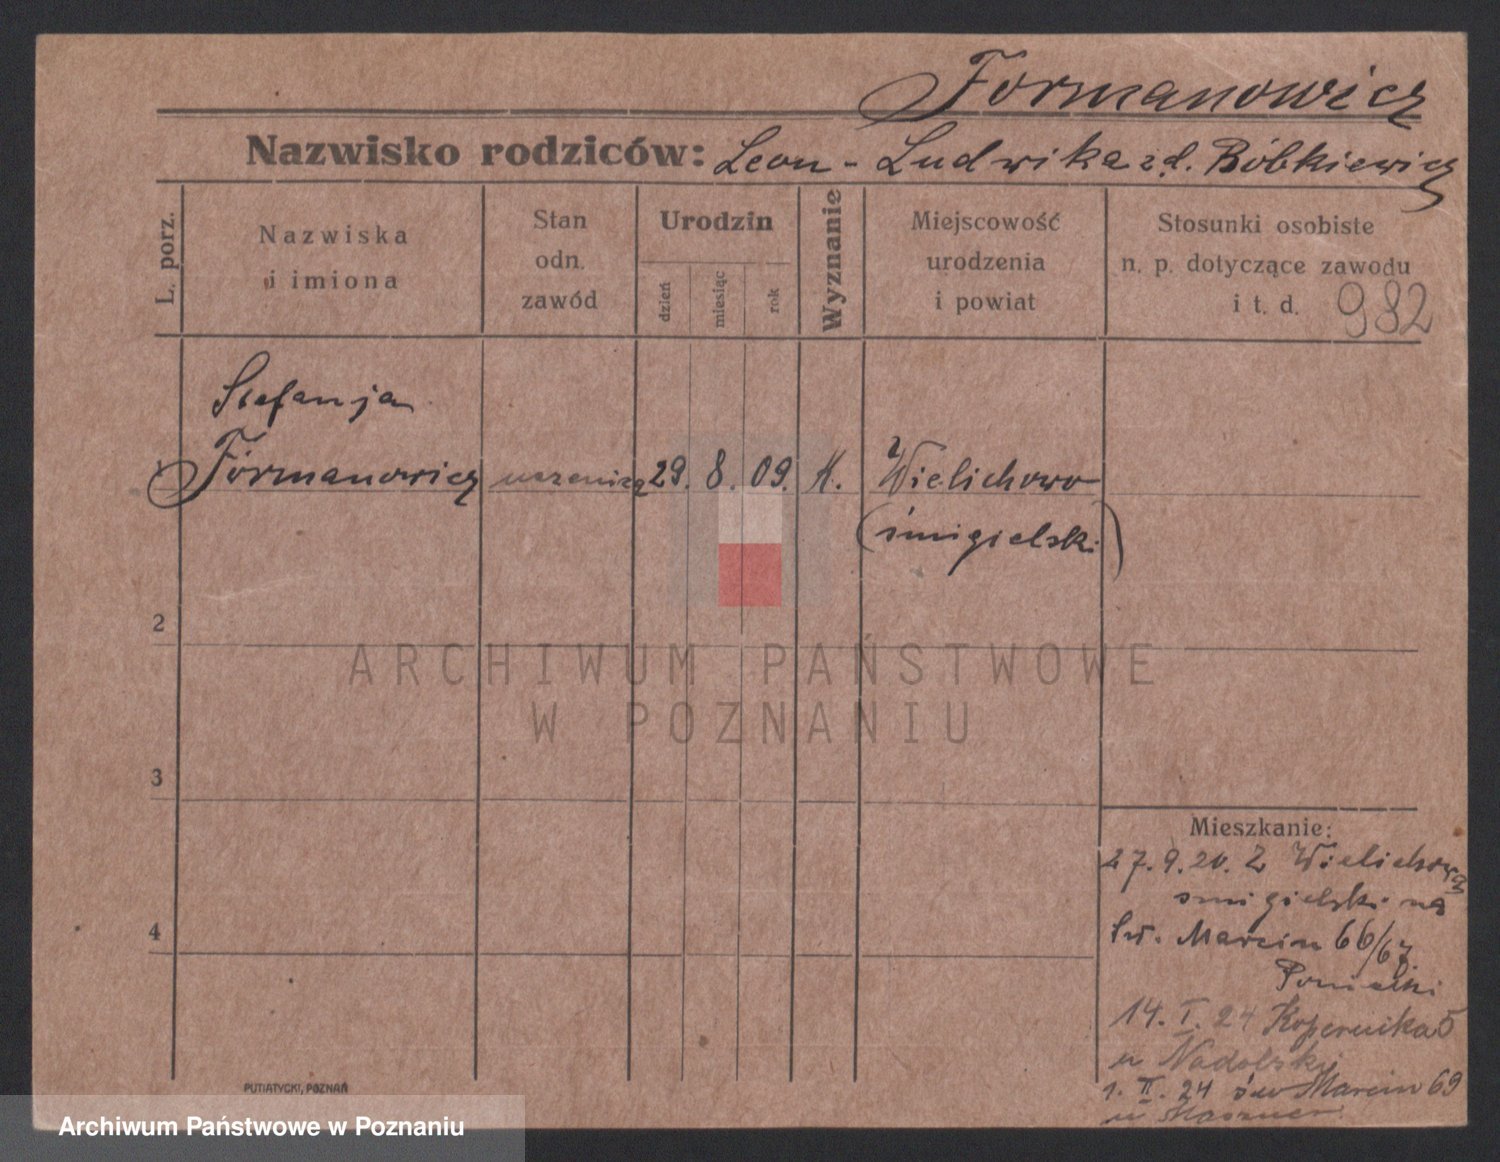 Formanowicz
Nazwisko rodziców: Leon - Ludwika z d. Bóbkiewicz
L. porz.
Nazwiska
i imiona
Stan
odn.
zawód
Urodzin
dzień
miesiąc
rok
Wyznanie
Miejscowość
urodzenia
i powiat
Stosunki osobiste
n. p. dotyczące zawodu
i t. d. 982
Stefanja
1 Formanowicz uczenicą 29. 8. 09. K. Wielichowo
(śmigielski)
2
ARCHIWUM PAŃSTWOWE
W POZNANIU
3
Mieszkanie:
27.9.20. Z Wielichowa
smigielski na
Św. Marcin 66/67
14. I. 24 Kopernika 5
u Nadolski
1. II. 24 św Marcin 69
u
4
PUTIATYCKI, POZNAŃ
Archiwum Państwowe w Poznaniu